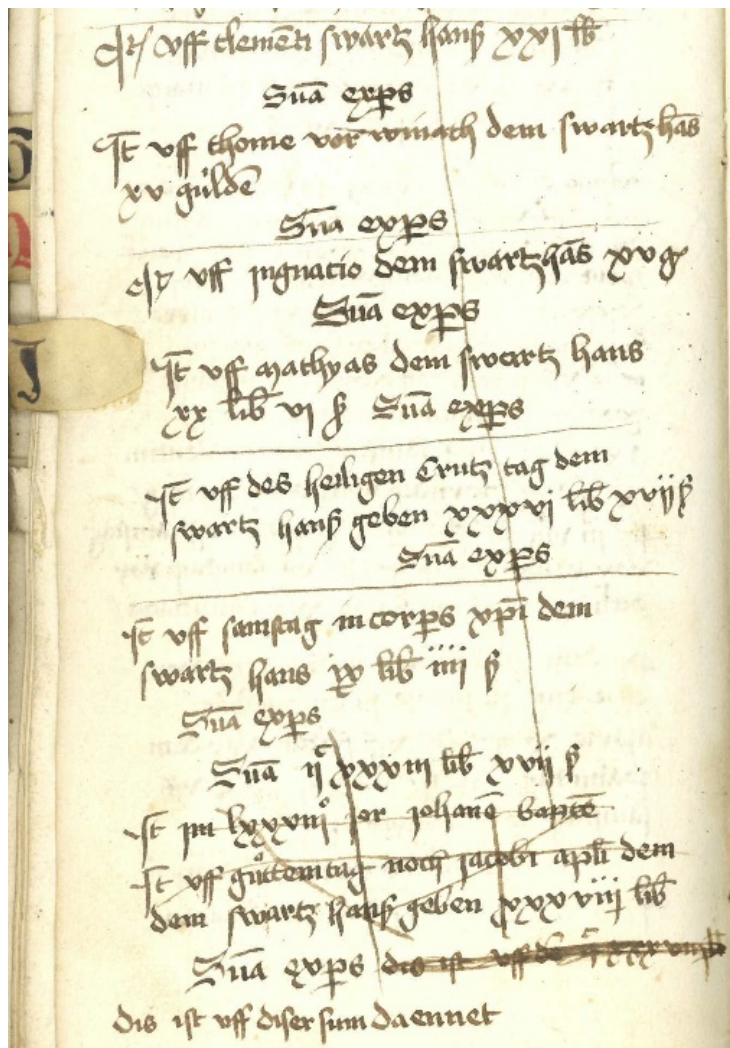 Jt uff clementi swartz hanß xxj lb
Sūa expēs
Jt uff thome vor winath dem swartz hās
xv guldē
Sūa expēs
Jt uff ingnatio dem swartz hās xv g
Sūa expēs
Jt uff mathyas dem swartz hans
xx lib vi ß Sūa expēs
Jt uff des heiligen Crutz tag dem
swartz hanß geben xxxvi lib xvij ß
Sūa expēs
Jt uff samstag in corpēs xpi dem
swartz hans ix lib iiii ß
Sūa expēs
Sūa ijc xxxiii lib xvii ß
Jt im lxxxviijo jor johanē baptē
Jt uff gůttemtag noch jacobi apli dem
dem swartz hanß geben xxxviij lib
Sūa expēs
dis ist uff diser sum da ennet